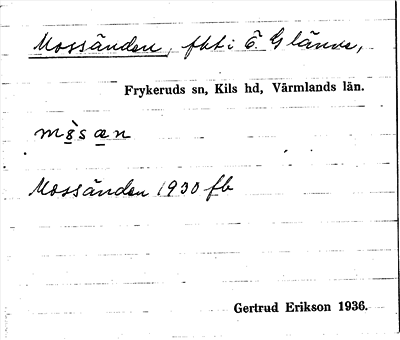 Mossänden, fht i Ö. Glänne,
Frykeruds sn, Kils hd, Värmlands län.
Mossänden 1930 fb
Gertrud Erikson 1936.